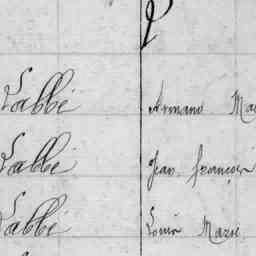 Labbé Armand
Labbé Jean François
Labbé Louis Marie